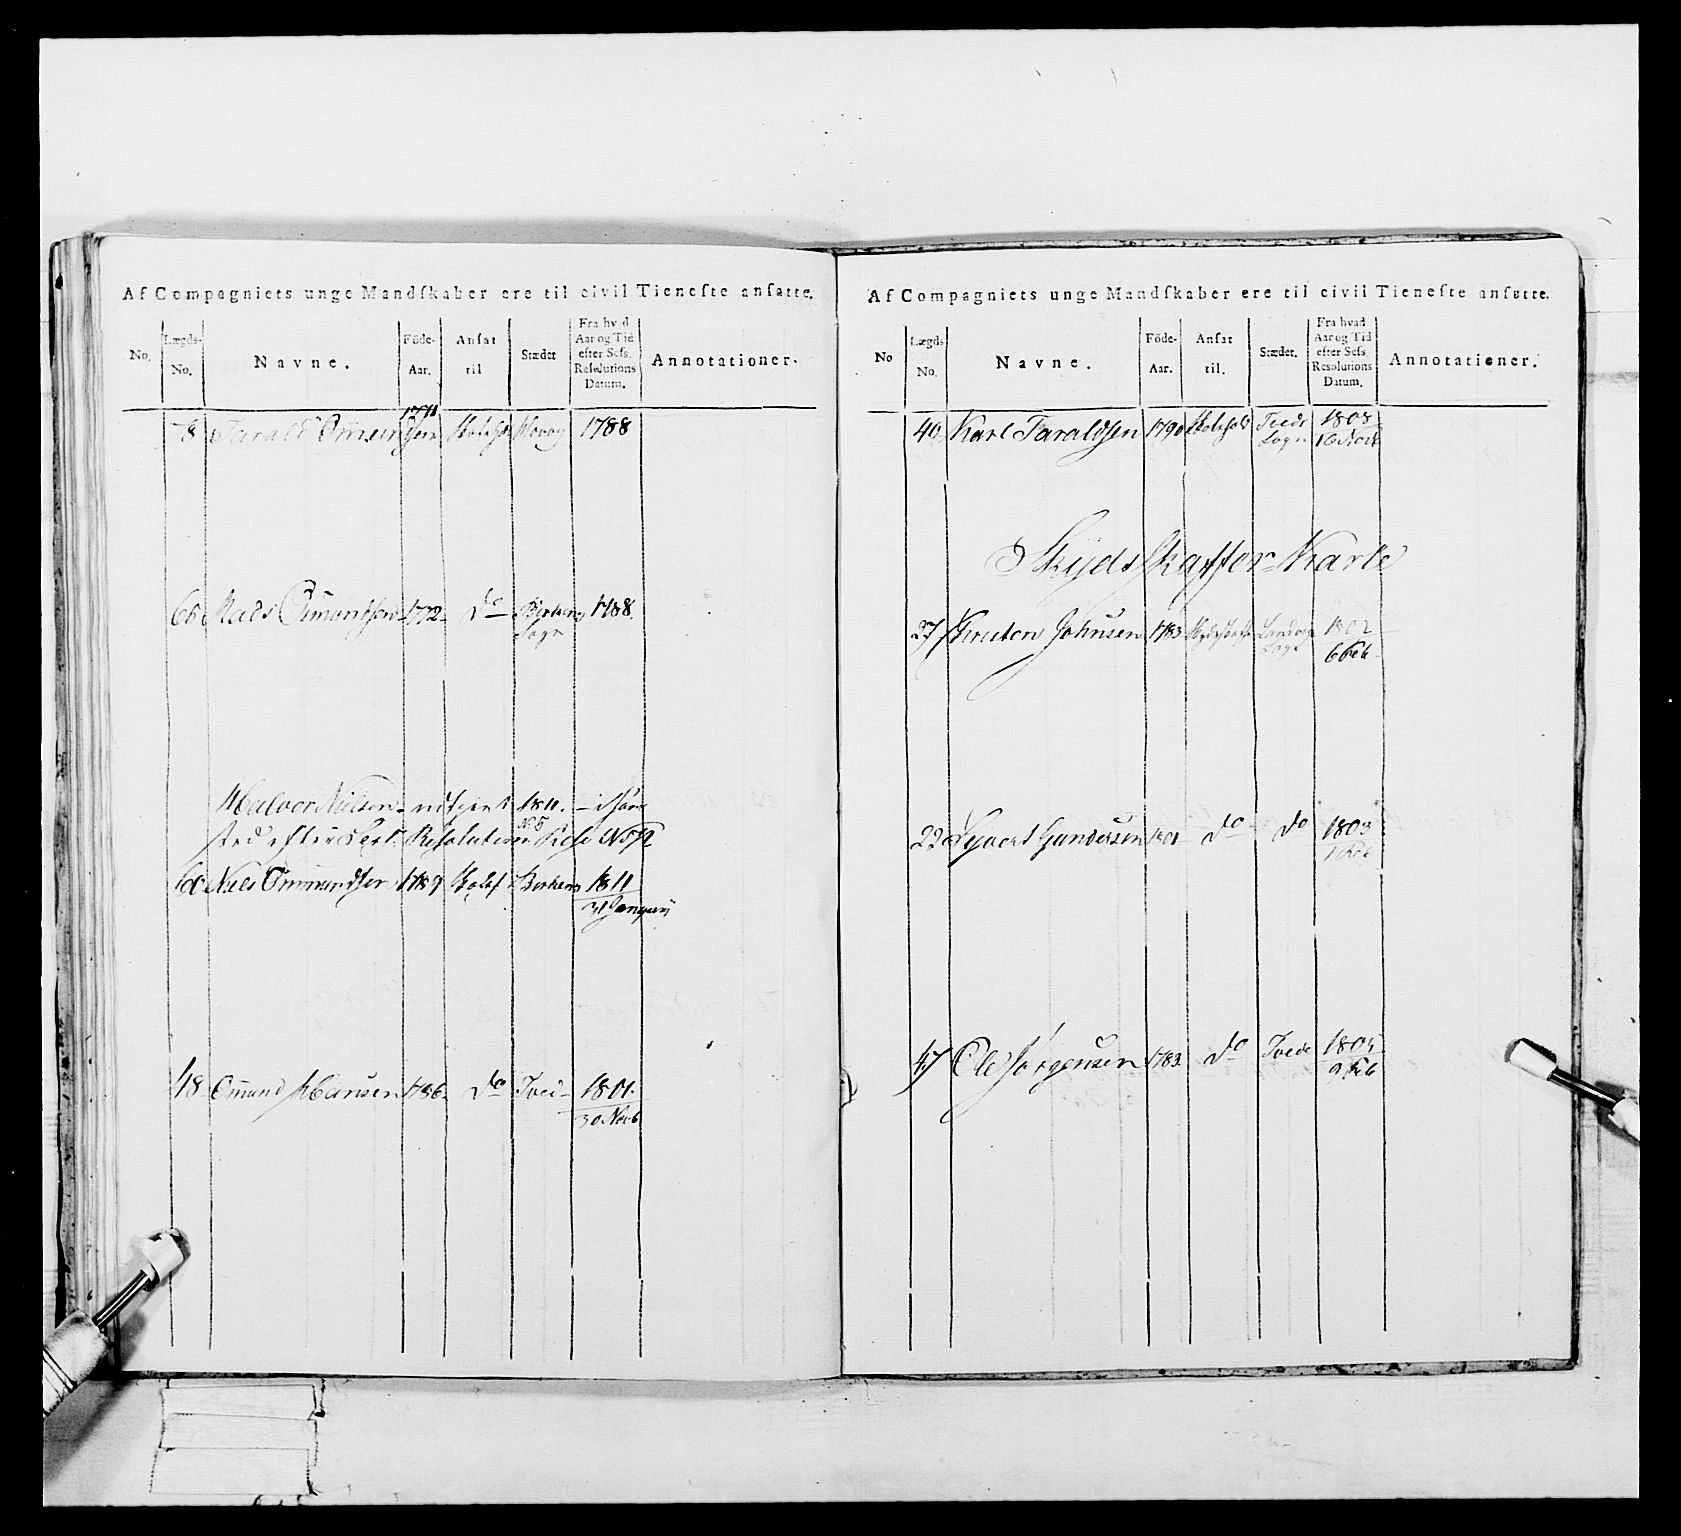 Af Compagniets unge Mandſkaber ere til civil Tieneſte anſatte.
No. Lægds-No. Navne. Föde-Aar. Anſat til Stædet Fra hvad Aar og Tid efter Seſs. Reſolutions Datum. Annotationer.
8 Tarald Omundsen 1771 1788
65 Mads Omundsen 1772 do Birkenes Sogn 1788.
Halvor Nielsen udgient 1811. i
sted efter Sess. Resolution No 5
60 Niels Ommundsen 1789 Birkenes 1811
31 January
48 Omund Hansen 1786 do Tved 1801.
30 Novb
Af Compagniets unge Mandſkaber ere til civil Tieneſte anſatte.
No Lægds No. Navne. Föde-Aar. Anſat til. Stædet. Fra hvad Aar og Tid efter Seſs. Resolutions Datum. Annotationer.
40 Karl Taraldsen 1790 Skoleh Tveds Sogn 1808
16 Novb
Skydsskaffer Karle
37 Knuten Johnsen 1783 Landvig Sogn 1802
6 Feb
22 Syvert Gundersen 1801 do do 1803
1 Feb
47 Ole Jørgensen 1783 do Tvede 1805
9 Feb